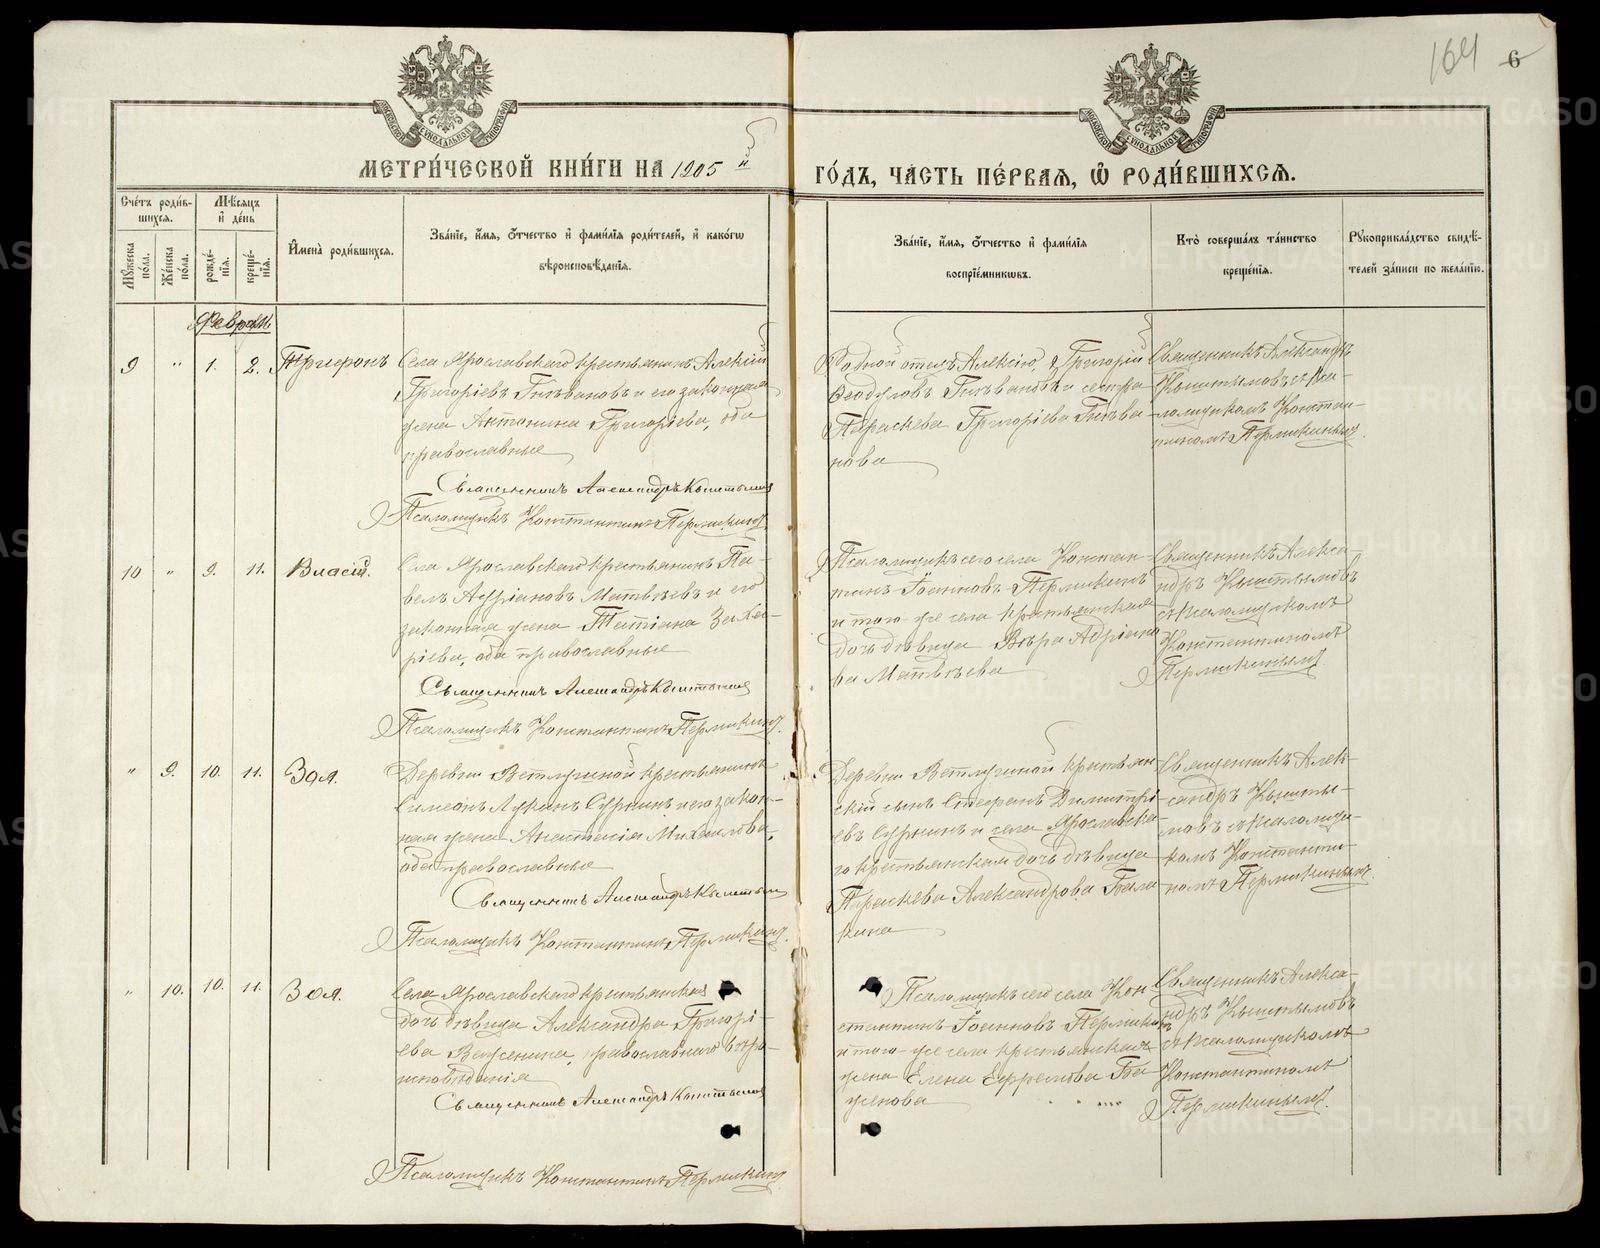 164 6
МЕТРИ́ЧЕСКОЙ КНИ́ГИ НА 1905 й
ГО́ДЪ, ЧА́СТЬ ПЕ́РВАЯ, Ѡ҆ РОДИ́ВШИХСЯ.
Сче́тъ роди́в-
шихся.
Мѣ́сяцъ
и҆ де́нь
Мꙋ́жеска
по́ла.
Же́нска
по́ла.
рожде́-
нїя.
креще́-
нїя.
И҆мена̀ роди́вшихся.
Зва́нїе, и҆́мя, ѻ҆́тчество и҆ фами́лїя роди́телей, и҆ како́гѡ
вѣроисповѣ́данїя.
Зва́нїе, и҆́мя, ѻ҆́тчество и҆ фами́лїя
воспрїе́мникѡвъ.
Кто̀ соверша́лъ та́инство
креще́нїя.
Рꙋкоприкла́дство свидѣ́-
телей за́писи по жела́нїю.
Февраль
9 " 1. 2. Трифонъ
Села Ярославскаго крестьянинъ Алексій
Григоріевъ Гнѣвановъ и его законная
жена Антонина Григоріева, оба
православные
Священникъ Александръ Кыштымовъ
Псаломщикъ Константинъ Пермикинъ
Родной отецъ Алексію, Григорій
Ѳеодуловъ Гнѣвановъ и сестра
Параскева Григоріева Гнѣва-
нова
Священникъ Александръ
Кыштымовъ съ пса-
ломщикомъ Констан-
тиномъ Пермикинымъ.
10 " 9. 11. Власій.
Села Ярославскаго крестьянинъ Па-
велъ Адріановъ Матвѣевъ и его
законная жена Татіана Заха-
ріева, оба православные
Священникъ Александръ Кыштымовъ
Псаломщикъ Константинъ Пермикинъ.
Псаломщикъ сего села Констан-
тинъ Іоанновъ Пермикинъ
и того-же села крестьянская
дочь дѣвица Вѣра Адріано
ва Матвѣева
Священникъ Алекса-
ндръ Кыштымовъ
съ псаломщикомъ
Константиномъ
Пермикинымъ
" 9. 10. 11. Зоя.
Деревни Ветлугиной крестьянинъ
Симеонъ Лукинъ Суркинъ и его закон-
ная жена Анастасія Михаилова,
оба православные
Священникъ Александръ Кыштымовъ
Псаломщикъ Константинъ Пермикинъ.
Деревни Ветлугиной крестьян
скій сынъ Стефанъ Димитрі-
евъ Суркинъ и села Ярославска-
го крестьянская дочь дѣвица
Параскева Александрова Бала
кина
Священникъ Алек-
сандръ Кышты-
мовъ съ псаломщи-
комъ Константи-
номъ Пермикинымъ.
" 10. 10. 11. Зоя.
Села Ярославскаго крестьянская
дочь дѣвица Александра Григорі-
ева Важенина, православнаго вѣро-
исповѣданія
Священникъ Александръ Кыштымовъ
Псаломщикъ Константинъ Пермикинъ
Псаломщикъ сего села Кон
стантинъ Іоанновъ Пермикинъ
и того-же села крестьянская
жена Елена Ефремова Ба
женова
Священникъ Алекса-
ндръ Кыштымовъ
съ псаломщикомъ
Константиномъ
Пермикинымъ.